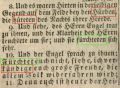 8. Und es waren Hirten in derselbigen
Gegend auf dem Felde bey den Hürden,
die hüteten des Nachts ihrer Heerde.
9. Und siehe, des Herrn Engel trat zu
ihnen, und die Klarheit des Herrn
leuchtete um sie; und sie fürchteten sich
sehr.
10. Und der Engel sprach zu ihnen:
Fürchtet euch nicht, siehe, ich ver-
kündige euch große Freude, die
allem Volk widerfahren wird;
11. Denn euch ist heute der